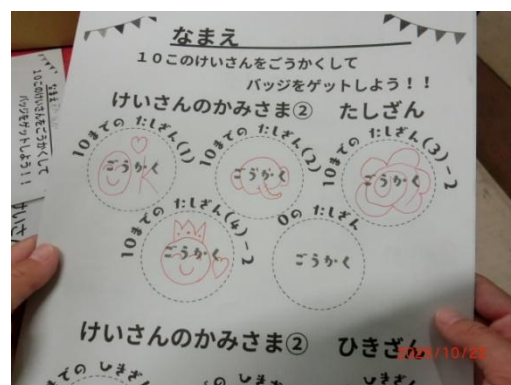 なまえ
10このけいさんをごうかくして
バッジをゲットしよう！！
けいさんのかみさま② たしざん
10までの たしざん(1)
ごうかく
OK
10までの たしざん(2)
ごうかく
10までの たしざん(3)-2
ごうかく
10までの たしざん(4)-2
ごうかく
0の たしざん
ごうかく
けいさんのかみさま② ひきざん
なまえ
10このけいさんをごうかくして
バッジをゲットしよう！！